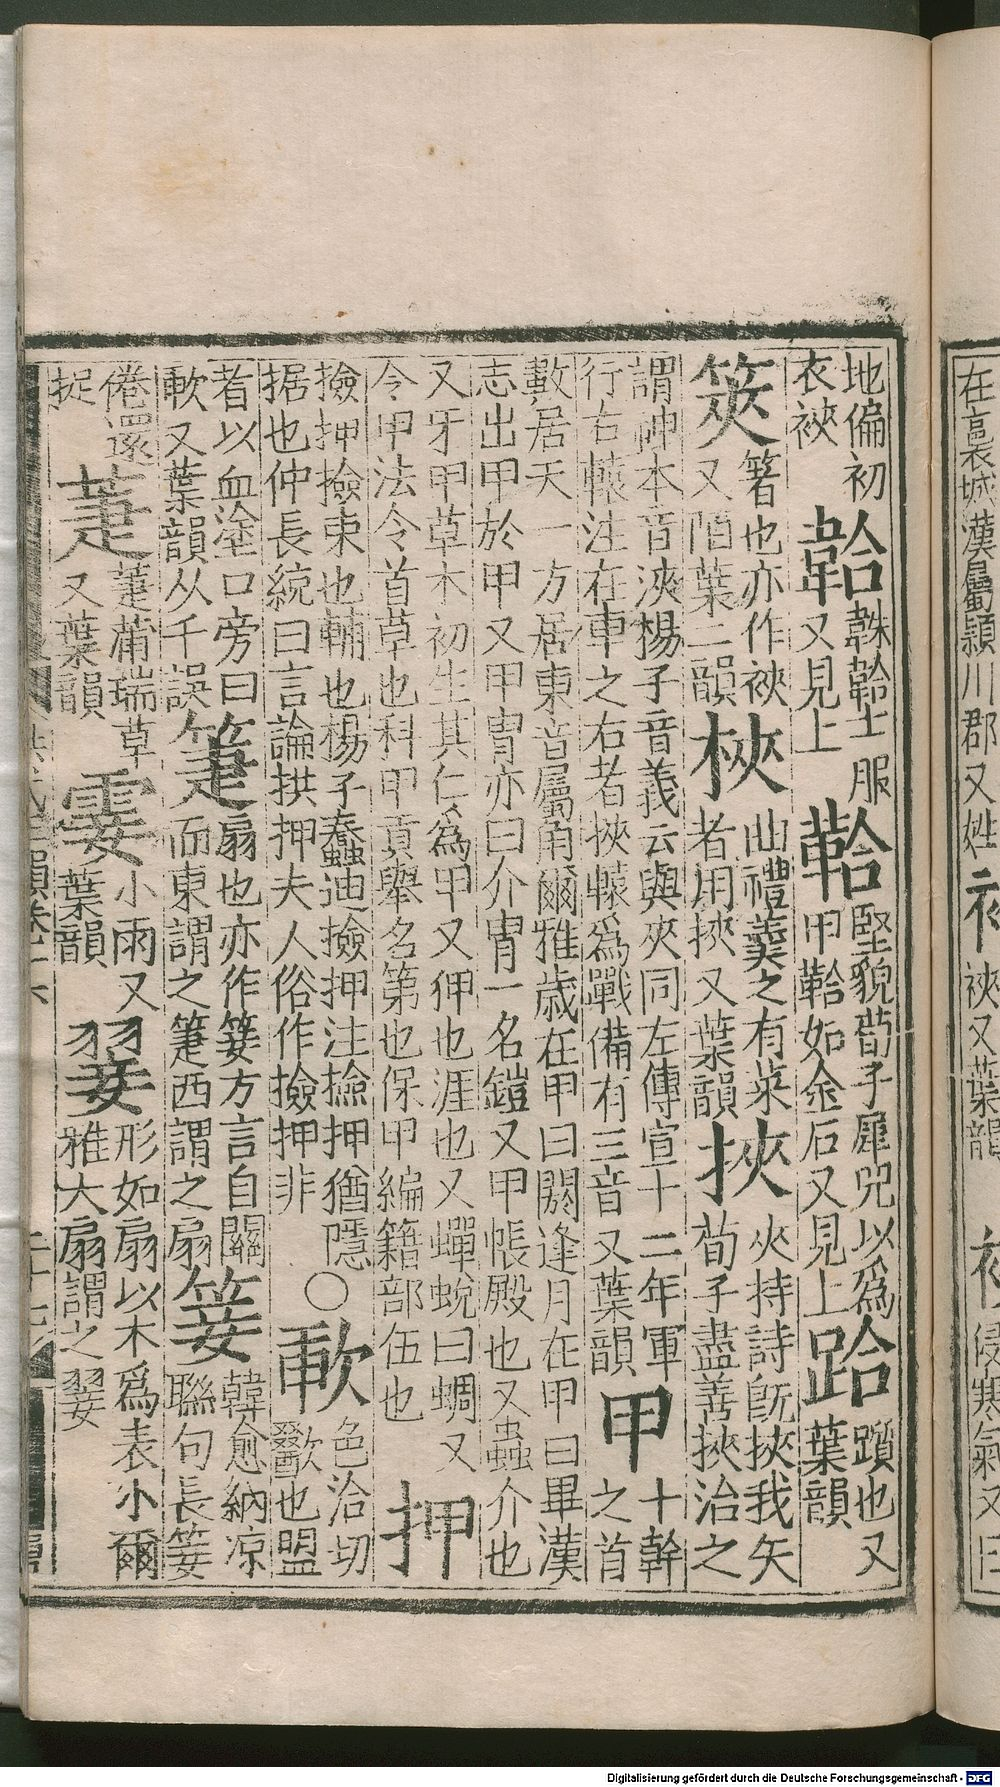 在襄城漢屬潁川郡又姓
裌又葉韻
侵寒氣又曰
地偏初
衣裌
韐
韎韐士服
又見上
鞈
堅貌荀子犀兕以為
甲鞈如金石又見上
跲
躓也又
葉韻
筴
箸也亦作梜
又陌葉二韻
梜
曲禮羹之有菜
者用梜又葉韻
挾
夾持詩旣挾我矢
荀子盡善挾治之
謂神本音浹楊子音義云與夾同左傳宣十二年軍
行右轅注在車之右者挾轅爲戰備有三音又葉韻
甲
十幹
之首
數居天一方居東音屬角爾雅歲在甲曰閼逢月在甲曰畢漢
志出甲於甲又甲冑亦曰介冑一名鎧又甲帳殿也又蟲介也
又牙甲草木初生其仁為甲又狎也涯也又蟬蛻曰蜩又
令甲法令首章也科甲貢舉名第也保甲編籍部伍也
押
撿押撿束也輔也楊子蠢迪撿押注撿押猶隱
据也仲長統曰言論拱押夫人俗作撿押非
○歃
色洽切
歠也盟
者以血塗口旁曰
歃又葉韻从千誤
箑
扇也亦作 方言自關
而東謂之箑西謂之扇
韓愈納凉
聯句長
倦還
捉
萐
萐莆瑞草
又葉韻
霎
小雨又
葉韻
翣
形如扇以木爲表小爾
雅大扇謂之翣
洪武正韻卷十六
二十七
Digitalisierung gefördert durch die Deutsche Forschungsgemeinschaft - DFG